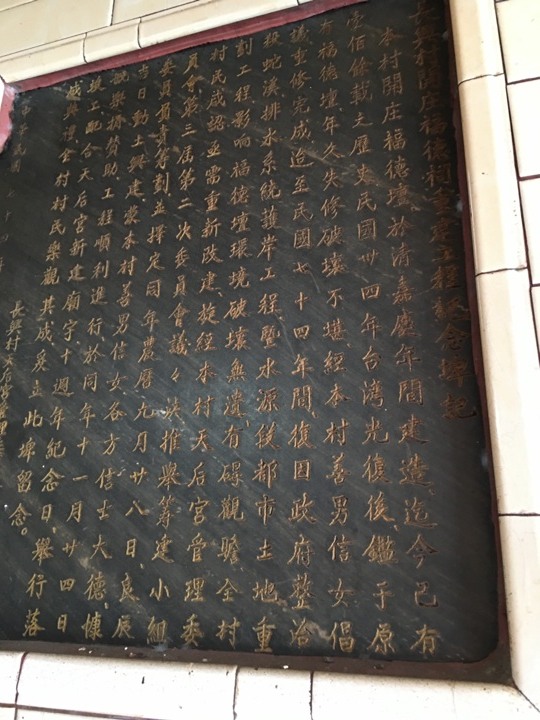 長興村開庄福德祠重建工程紀念碑記
本村開庄福德壇於清嘉慶年間建造迄今已有
壹佰餘載之歷史民國卅四年台灣光復後、鑑于原
有福德壇年久失修破壞不堪經本村善男信女倡
議重修完成迨至民國七十四年間復因政府整治
後蛇溪排水系統護岸工程暨水源僕都市土地重
劃工程影响福德壇環境破壞無遺有碍觀瞻全村
村民咸認亟需重新改建、按經本村天后宮管理委
員會第三届第二次委員會議々決推舉籌建小組
委員負責籌劃並擇定同年農曆九月廿八日良辰
吉日動土興建蒙本村善男信女各方信士大德慷
慨樂捐贊助工程順利進行於同年十一月廿四日
竣工配合天后宮新建廟宇十週年紀念日、舉行落
成典禮全村村民樂觀其成爰立此碑留念。
長興村天后宮管理